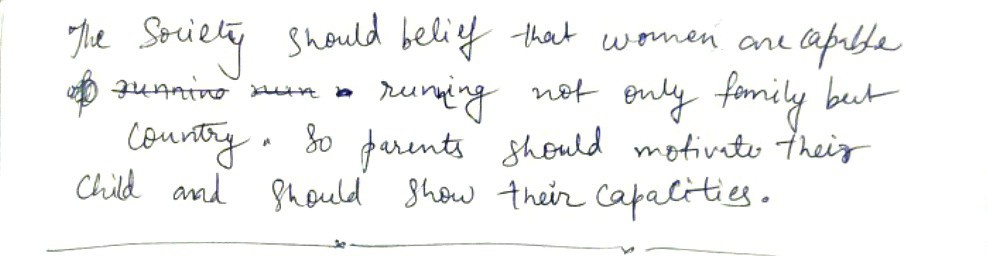 The Society should belief that women are capable
of running not only family but
Country. So parents should motivate their
Child and should show their capalities.